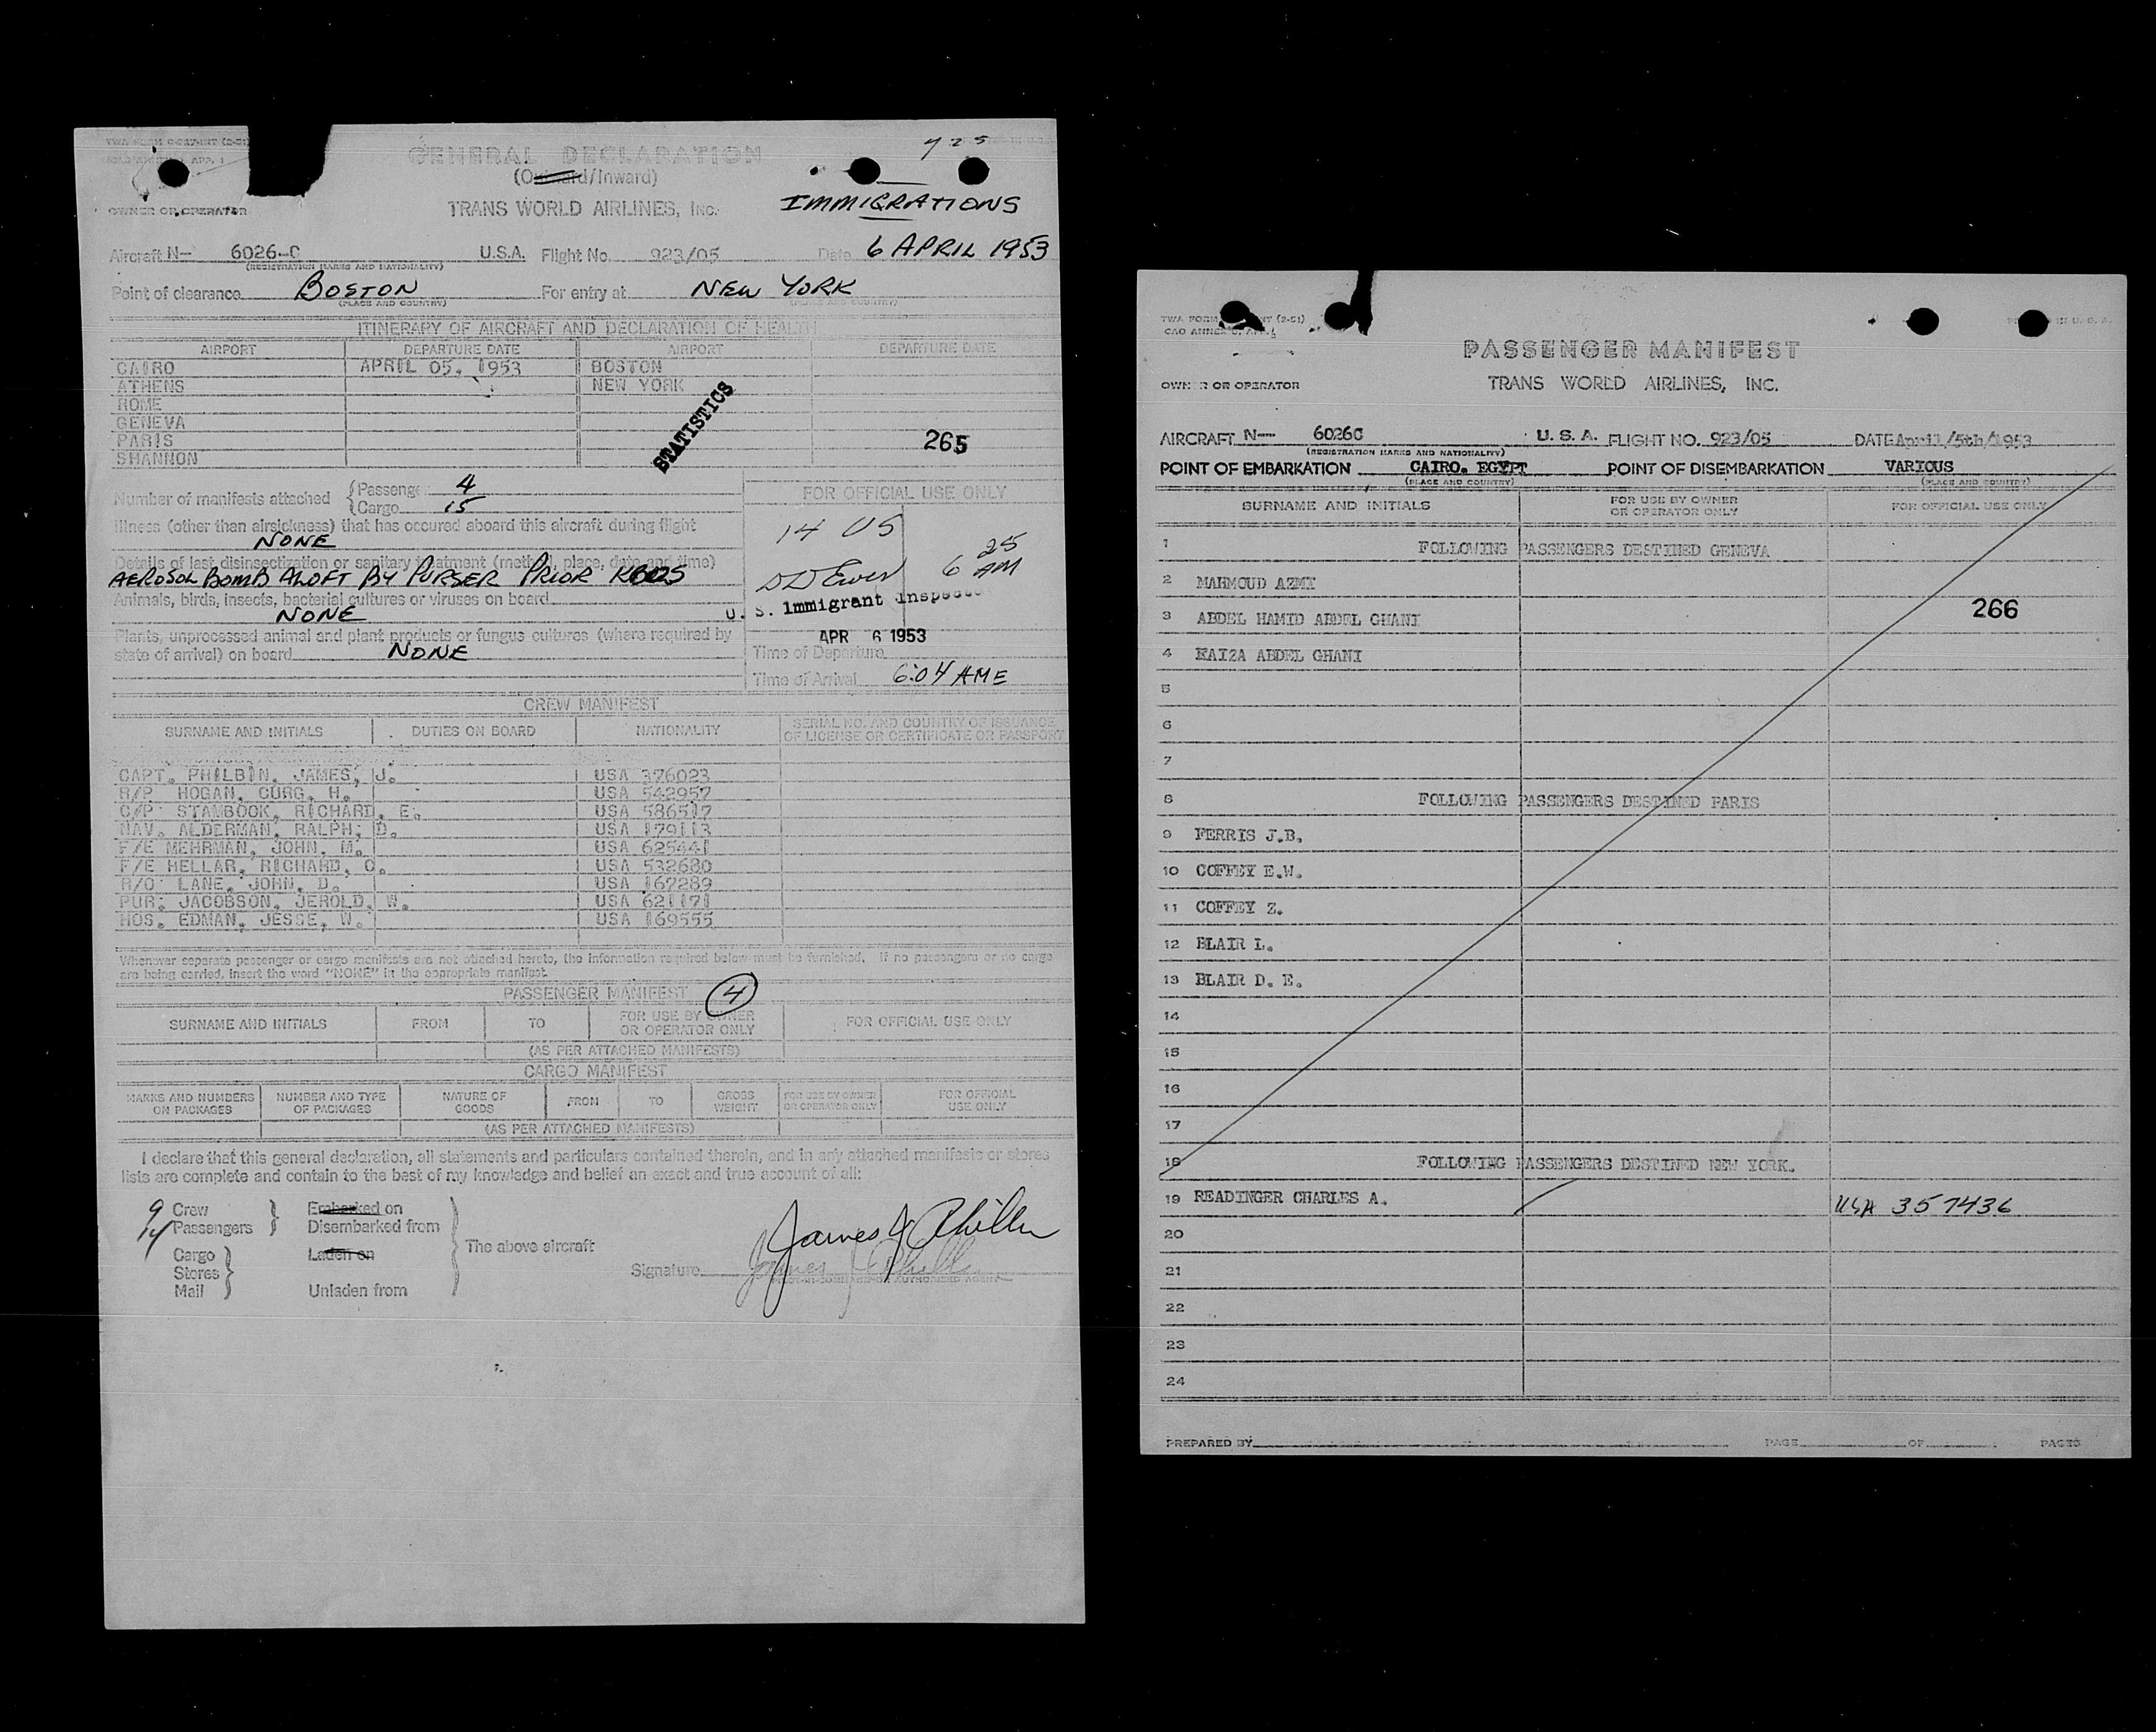 GENERAL DECLARATION
925
(Outward/Inward)
IMMIGRATIONS
OWNER OR OPERATOR
TRANS WORLD AIRLINES, INC.
Aircraft N- 6026-C U.S.A. Flight No. 923/05 Date 6 APRIL 1953
(REGISTRATION MARKS AND NATIONALITY)
Point of clearance BOSTON For entry at NEW YORK
(PLACE AND COUNTRY) (PLACE AND COUNTRY)
ITINERARY OF AIRCRAFT AND DECLARATION OF HEALTH
AIRPORT DEPARTURE DATE AIRPORT DEPARTURE DATE
CAIRO APRIL 05, 1953 BOSTON
ATHENS NEW YORK
ROME
GENEVA
PARIS 265
SHANNON
STATISTICS
Number of manifests attached {Passenger 4
{Cargo 15
FOR OFFICIAL USE ONLY
Illness (other than airsickness) that has occured aboard this aircraft during flight
NONE
14 US
Details of last disinsectization or sanitary treatment (method, place, date and time)
AEROSOL BOMB ALOFT BY PURSER PRIOR
6 25 AM
Animals, birds, insects, bacterial cultures or viruses on board
NONE
U. S. Immigrant Inspector
Plants, unprocessed animal and plant products or fungus cultures (where required by
state of arrival) on board NONE
APR 6 1953
Time of Departure
Time of Arrival 6:04 AME
CREW MANIFEST
SURNAME AND INITIALS DUTIES ON BOARD NATIONALITY SERIAL NO. AND COUNTRY OF ISSUANCE
OF LICENSE OR CERTIFICATE OR PASSPORT
CAPT. PHILBIN, JAMES, J. USA 376023
R/P HOGAN, CURG, H. USA 542957
C/P STAMBOOK, RICHARD, E. USA 586517
NAV. ALDERMAN, RALPH, D. USA 179113
F/E MEHRMAN, JOHN, M. USA 625441
F/E HELLAR, RICHARD, O. USA 532680
R/O LANE, JOHN, D. USA 167289
PUR. JACOBSON, JEROLD, W. USA 621171
HOS. EDMAN, JESSE, W. USA 169555
Whenever separate passenger or cargo manifests are not attached hereto, the information required below must be furnished. If no passengers or no cargo
are being carried, insert the word "NONE" in the appropriate manifest.
PASSENGER MANIFEST 4
SURNAME AND INITIALS FROM TO FOR USE BY OWNER
OR OPERATOR ONLY FOR OFFICIAL USE ONLY
(AS PER ATTACHED MANIFESTS)
CARGO MANIFEST
MARKS AND NUMBERS
ON PACKAGES NUMBER AND TYPE
OF PACKAGES NATURE OF
GOODS FROM TO GROSS
WEIGHT FOR USE BY OWNER
OR OPERATOR ONLY FOR OFFICIAL
USE ONLY
(AS PER ATTACHED MANIFESTS)
I declare that this general declaration, all statements and particulars contained therein, and in any attached manifests or stores
lists are complete and contain to the best of my knowledge and belief an exact and true account of all:
9 Crew Embarked on
14 Passengers Disembarked from
Cargo Laden on
The above aircraft
Stores
Mail Unladen from
Signature James J Philbin
PASSENGER MANIFEST
OWNER OR OPERATOR
TRANS WORLD AIRLINES, INC.
AIRCRAFT N- 6026C U. S. A. FLIGHT NO. 923/05 DATE April/5th/1953
(REGISTRATION MARKS AND NATIONALITY)
POINT OF EMBARKATION CAIRO. EGYPT POINT OF DISEMBARKATION VARIOUS
(PLACE AND COUNTRY) (PLACE AND COUNTRY)
SURNAME AND INITIALS FOR USE BY OWNER
OR OPERATOR ONLY FOR OFFICIAL USE ONLY
1 FOLLOWING PASSENGERS DESTINED GENEVA
2 MAHMOUD AZMY
3 ABDEL HAMID ABDEL GHANI 266
4 KAIZA ABDEL GHANI
5
6
7
8 FOLLOWING PASSENGERS DESTINED PARIS
9 FERRIS J.B.
10 COFFEY E.W.
11 COFFEY Z.
12 BLAIR L.
13 BLAIR D. E.
14
15
16
17
18 FOLLOWING PASSENGERS DESTINED NEW YORK.
19 READINGER CHARLES A. USA 357436
20
21
22
23
24
PREPARED BY PAGE OF PAGES